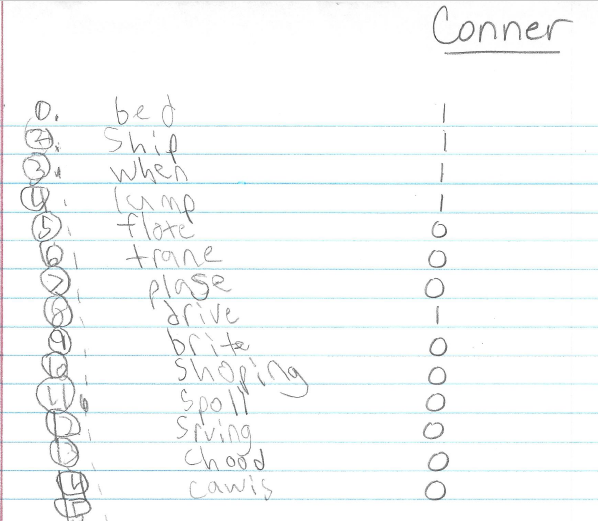 Conner
0. bed 1
2. Ship 1
3. when 1
4. lump 1
5. flote 0
6. trane 0
7. plase 0
8. drive 1
9. brite 0
10. shoping 0
11. spoll 0
12. Srving 0
13. chood 0
14. cawis 0
15